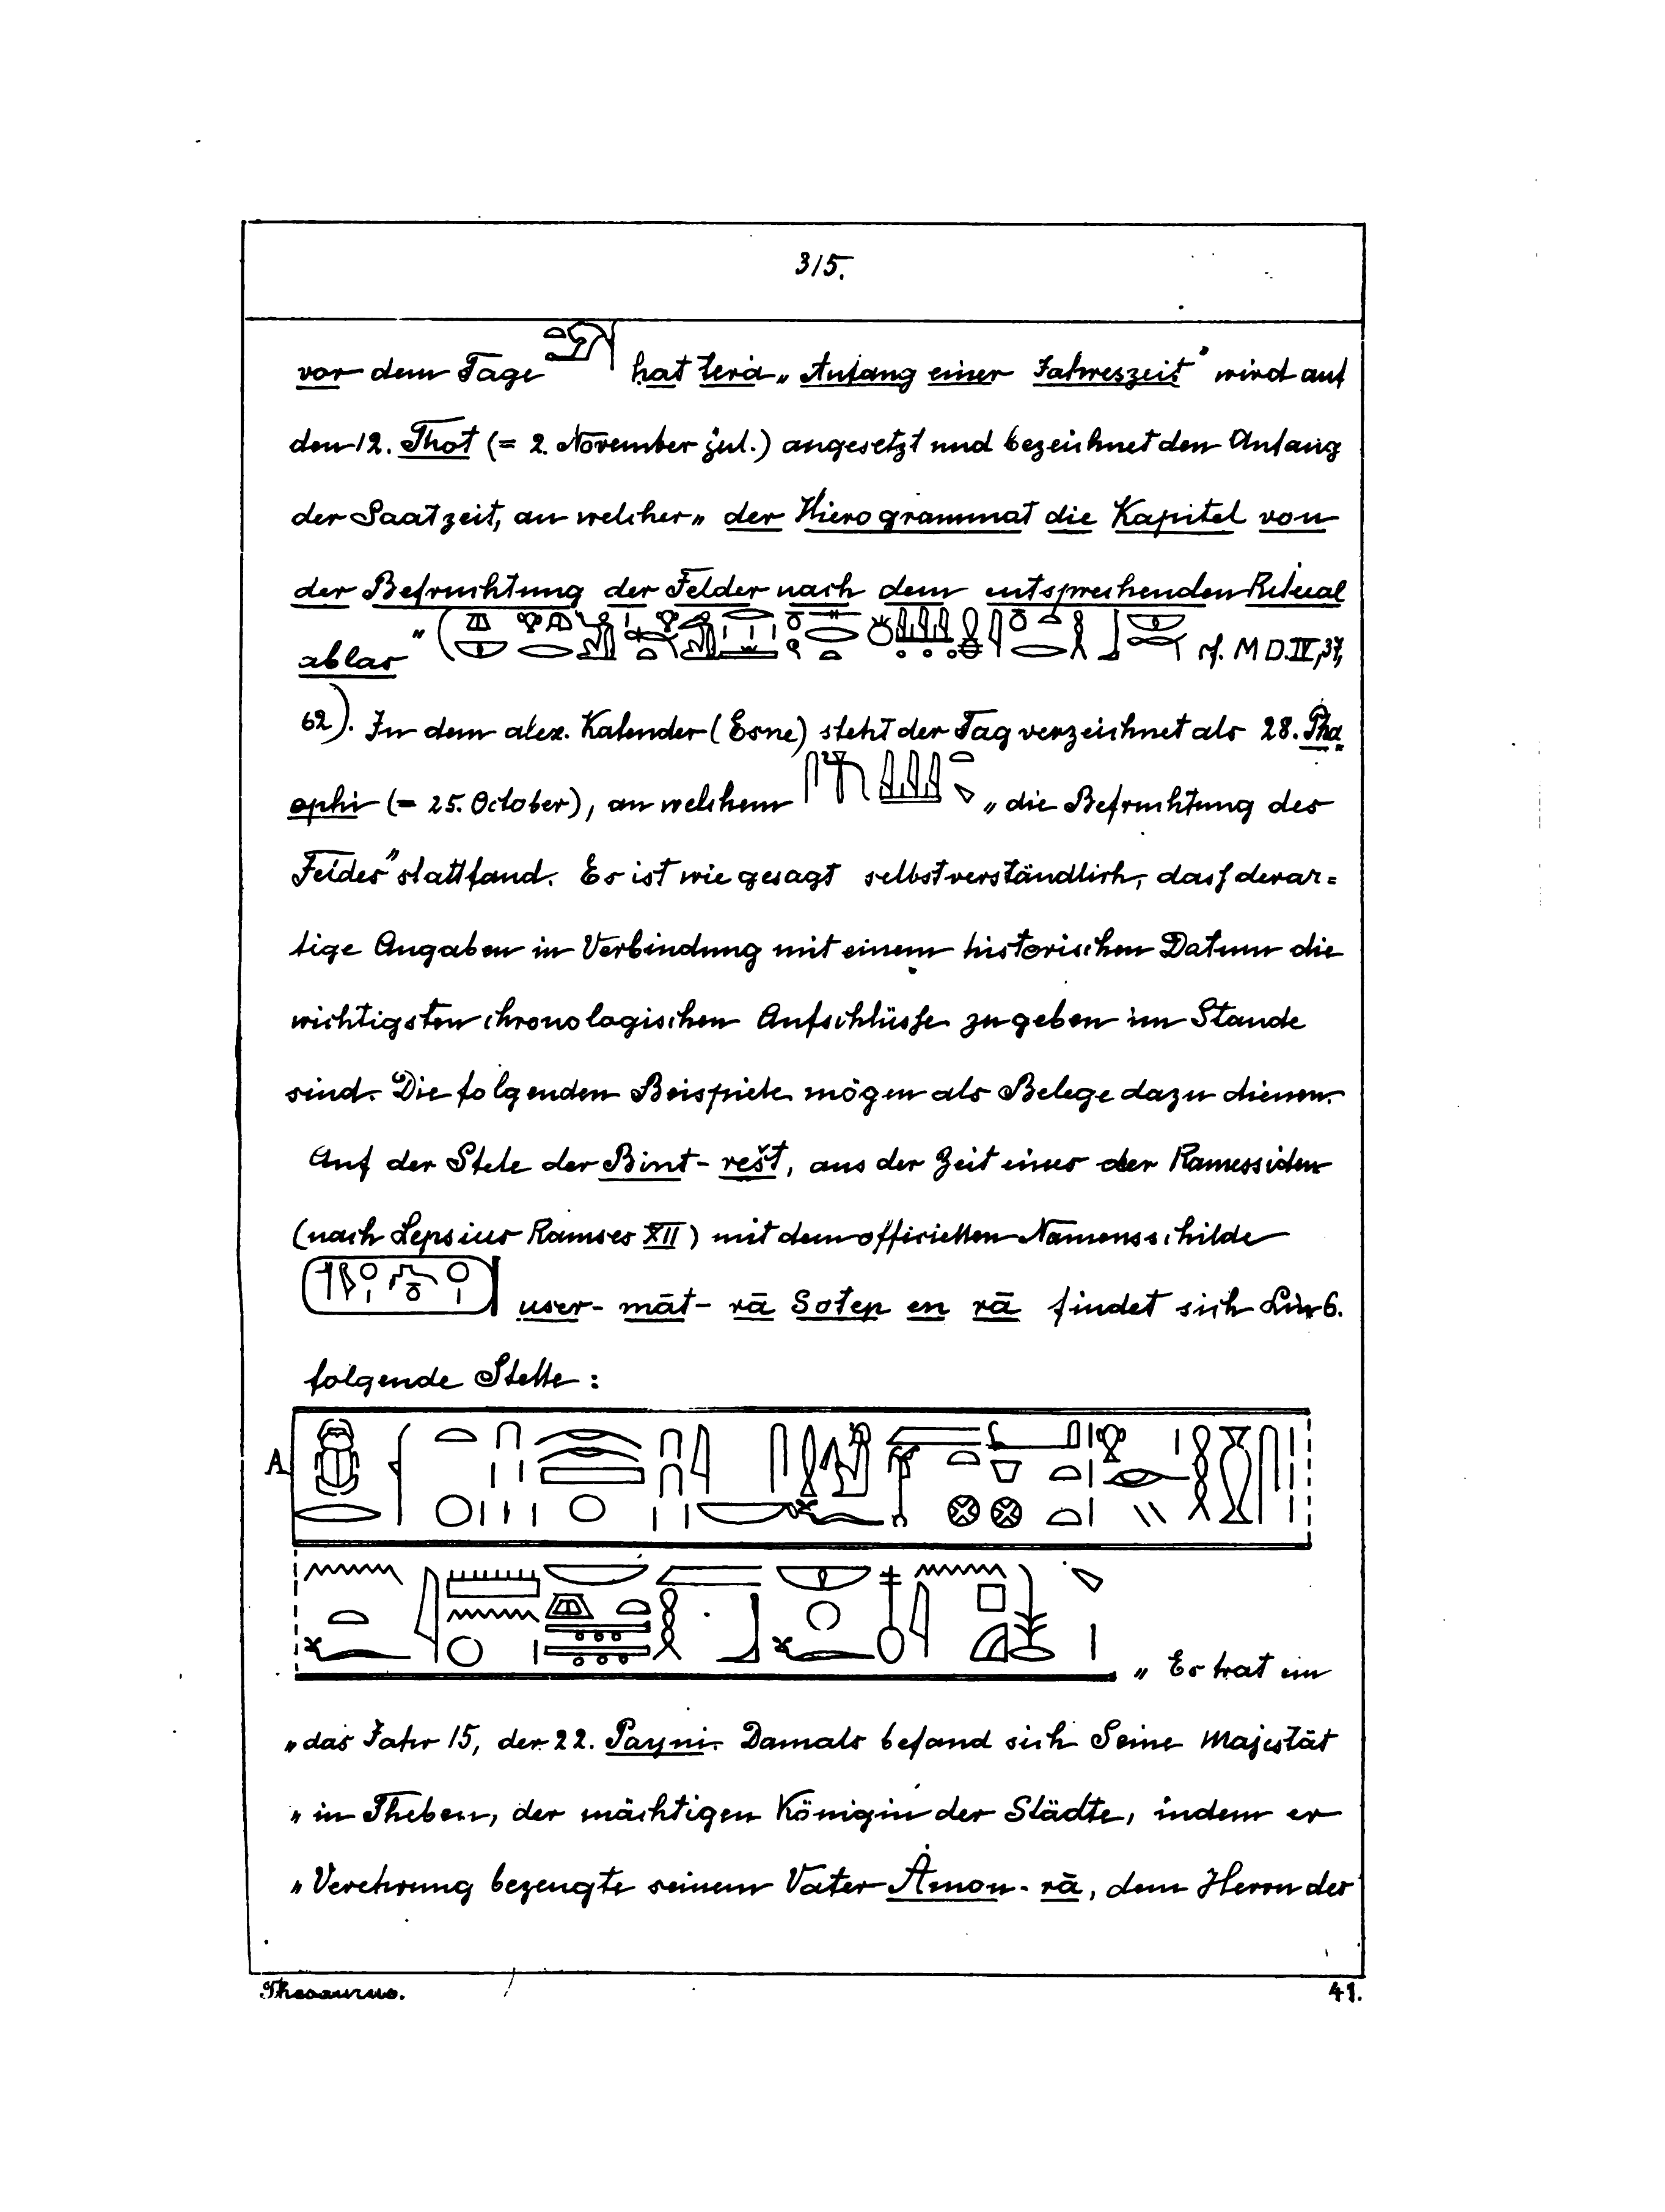 315.
vor dem Tage hat terȧ „Anfang einer Jahreszeit" wird auf
den 12. Thot (= 2. November jul.) angesetzt und bezeichnet den Anfang
der Saatzeit, an welcher „der Hierogrammat die Kapitel von
der Befruchtung der Felder nach dem entsprechenden Ritual
ablas" ( cf. M D. IV, 37,
62). In dem alex. Kalender (Esne) steht der Tag verzeichnet als 28. Pha
ophi (= 25. October), an welchem „die Befruchtung des
Feldes" stattfand. Es ist wie gesagt selbstverständlich, dass derar=
tige Angaben in Verbindung mit einem historischen Datum die
wichtigsten chronologischen Aufschlüsse zu geben im Stande
sind. Die folgenden Beispiele mögen als Belege dazu dienen.
Auf der Stele der Bint-rešt, aus der Zeit eines der Ramessiden
(nach Lepsius Ramses XII) mit dem officiellen Namensschilde
user-māt-rā Sotep en rā findet sich Lin 6.
folgende Stelle:
A
„Es trat ein
„das Jahr 15, der 22. Payni. Damals befand sich Seine Majestät
„in Theben, der mächtigen Königin der Städte, indem er
„Verehrung bezeugte seinem Vater Ȧmon-rā, dem Herrn des
Thesaurus. 41.